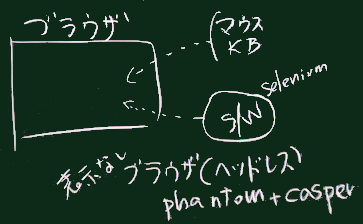 ブラウザ
マウス
KB
selenium
S/W
表示なし
ブラウザ(ヘッドレス)
phantom + casper